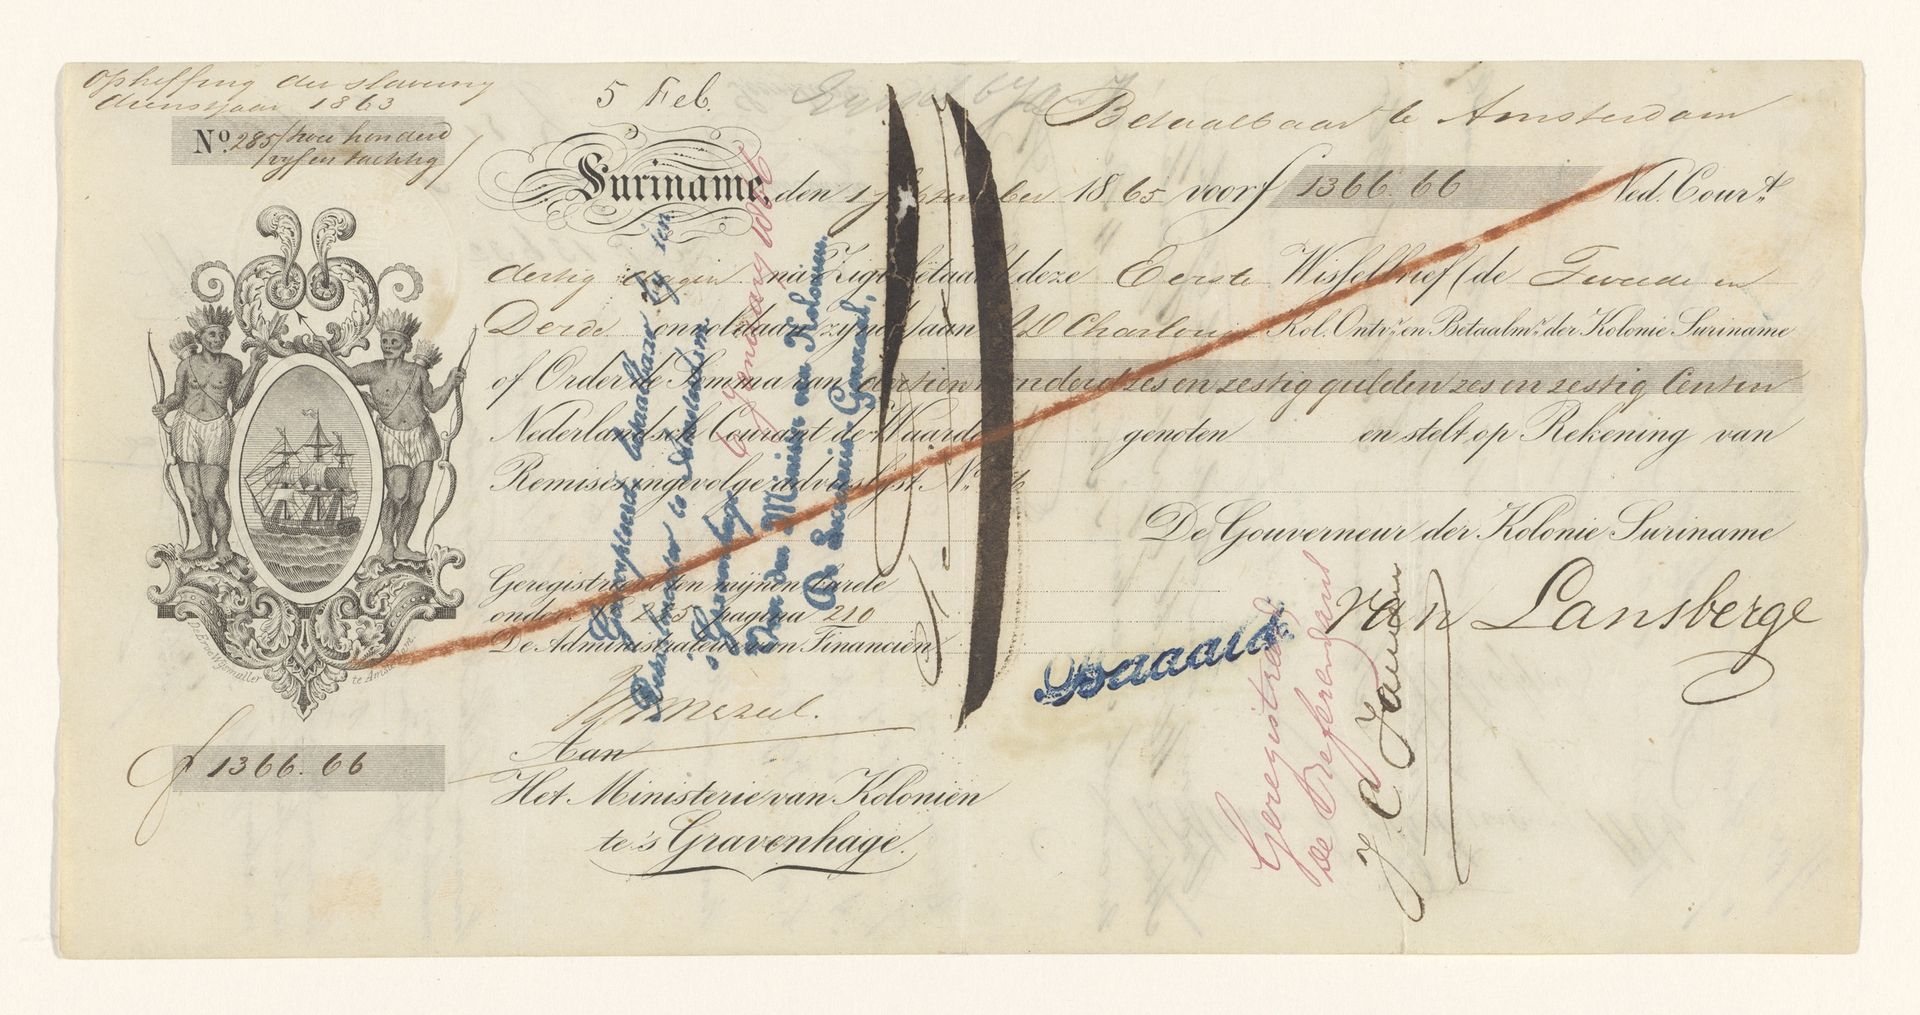 Opheffing der slaverny
dienstjaar 1863
No. 285/twee honderd
vyf en tachtig/
5 Feb.
Betaalbaar te Amsterdam
Suriname, den 1 September 1865 voor f 1366.66 Ned. Cour.t
dertig dagen na Zigt betaal deze Eerste Wisselbrief (de Tweede en
Derde onvoldaan zynde) aan Kol. Ontv.r en Betaalm.r der Kolonie Suriname
of Order de Somma van dertien honderd zes en zestig gulden zes en zestig Centen
Nederlandsch Courant de Waarde genoten en stelt op Rekening van
Remises ingevolge advieslyst No.
De Gouverneur der Kolonie Suriname
van Lansberge
Geregistreerd ten mijnen burele
onder No. 285 pagina 210
De Administrateur van Financien
f 1366.66
Aan
Het Ministerie van Koloniën
te 's Gravenhage.
Geaccepteerd, betaalbaar by den
te Amsterdam
's Gravenhage
Van den Minister van Kolonien,
De Secretaris-Generaal,
6 January 1866
Betaald.
Geregistreerd
de Referendaris